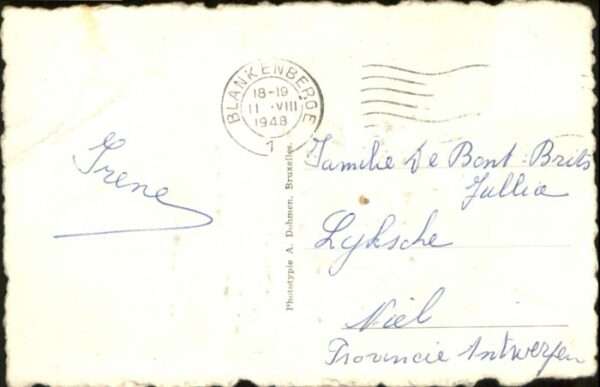 BLANKENBERGE
18-19
11 ·VIII
1948
1
Irene
Phototypie A. Dohmen, Bruxelles.
Familie De Bont-Brits
Jullia
Lyksche
Niel
Provincie Antwerpen